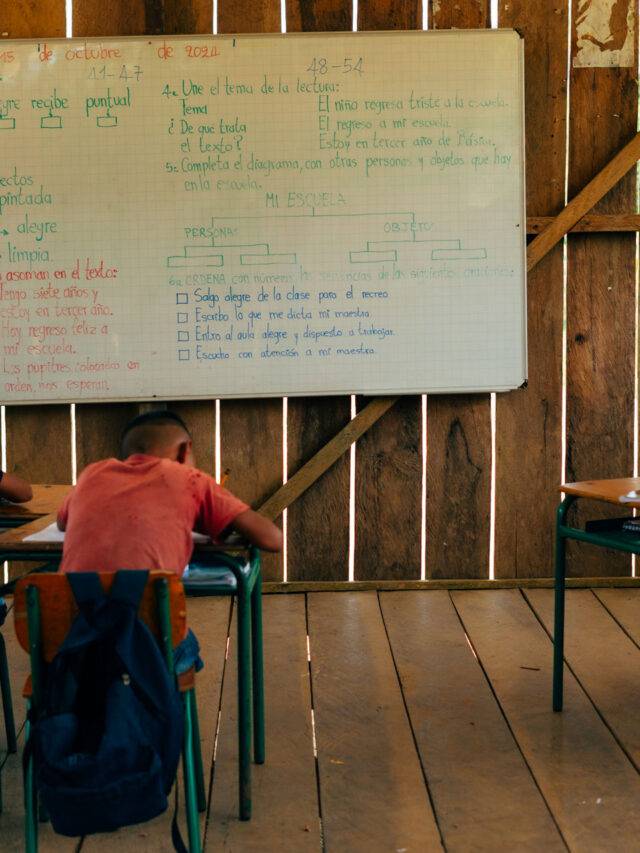 15 de octubre de 2021
41-47
recibe puntual
ectos
pintada
alegre
limpia.
asoman en el texto:
Tengo siete años y
estoy en tercer año.
Hoy regreso feliz a
mi escuela.
Los pupitres, colocados en
orden, nos esperan.
48-54
4. Une el tema de la lectura:
Tema El niño regresa triste a la escuela.
¿De qué trata El regreso a mi escuela.
el texto? Estoy en tercer año de
5. Completa el diagrama, con otras personas y objetos que hay
en la escuela.
MI ESCUELA
PERSONAS OBJETO
6. ORDENA con números las secuencias de las siguientes oraciones:
Salgo alegre de la clase para el recreo
Escribo lo que me dicta mi maestra
Entro al aula alegre y dispuesto a trabajar.
Escucho con atención a mi maestra.